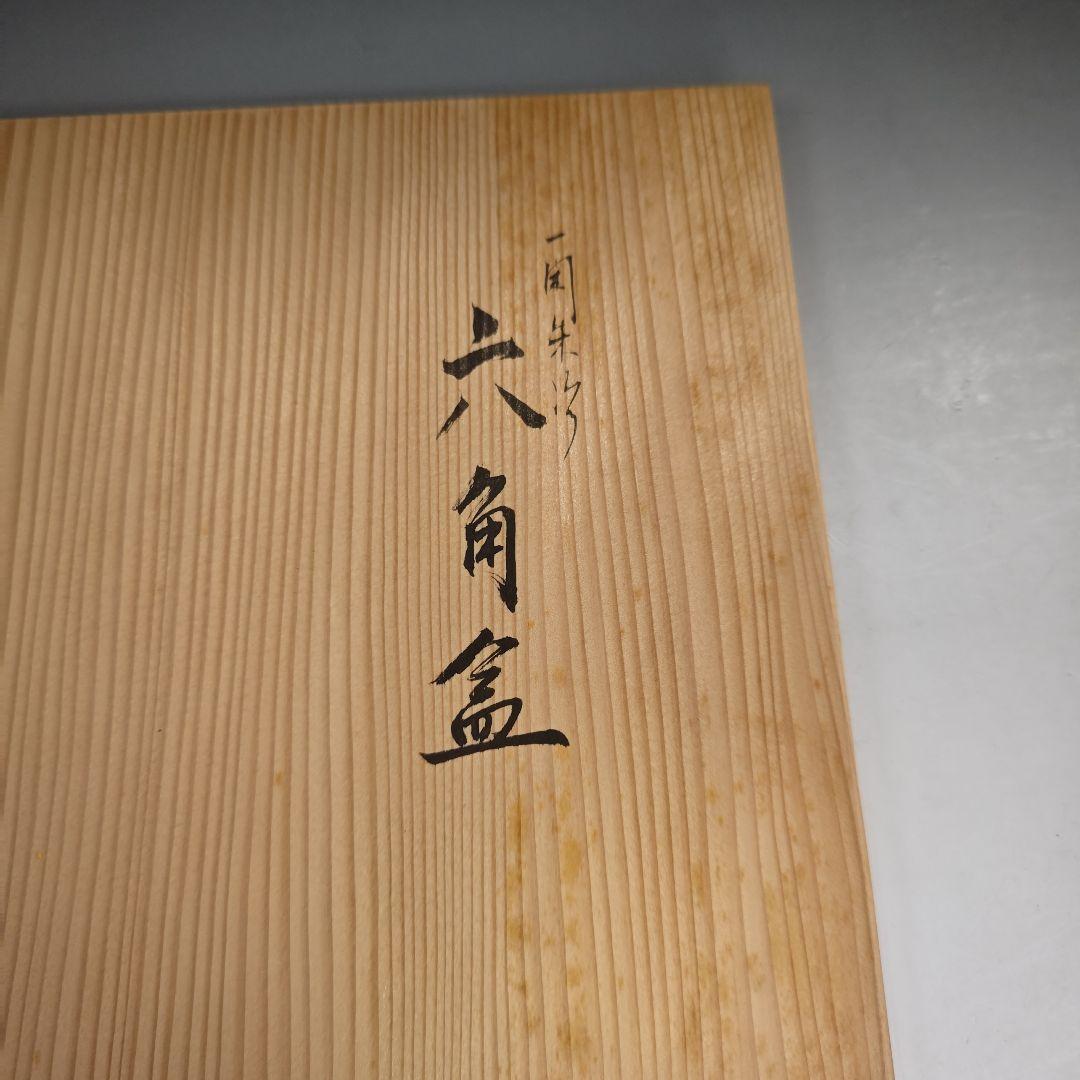 一閑朱塗
六角盆